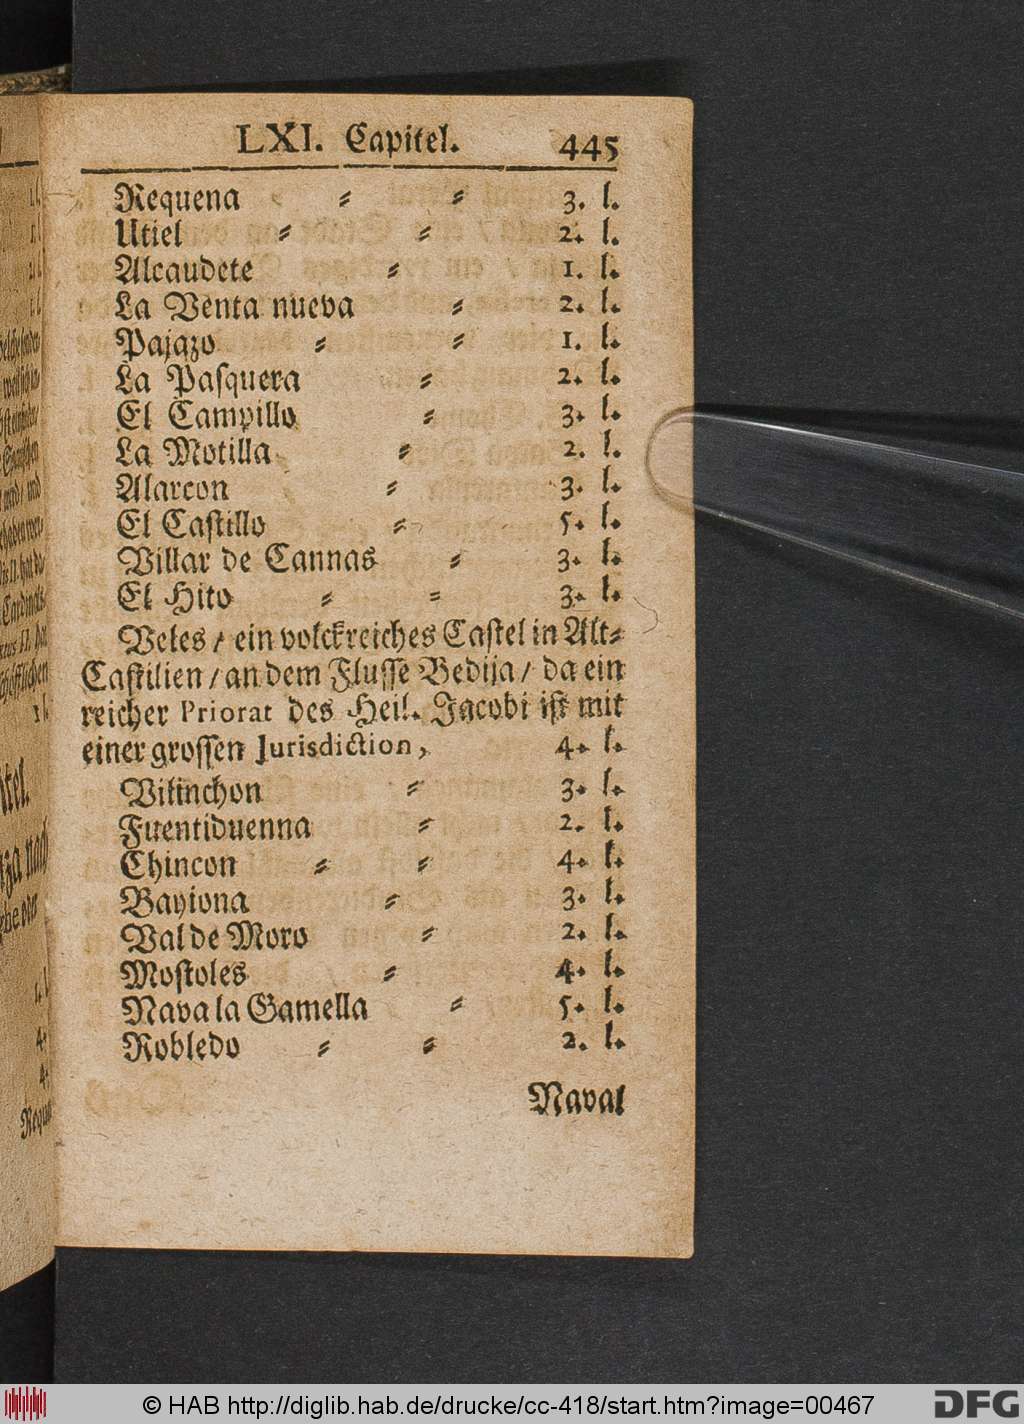 LXI. Capitel. 445
Requena ⸗ ⸗ 3. l.
Utiel ⸗ ⸗ 2. l.
Alcaudete ⸗ 1. l.
La Venta nueva ⸗ 2. l.
Pajazo ⸗ ⸗ 1. l.
La Paſquera ⸗ 2. l.
El Campillo ⸗ 3. l.
La Motilla ⸗ 2. l.
Alarcon ⸗ 3. l.
El Caſtillo ⸗ 5. l.
Villar de Cannas ⸗ 3. l.
El Hito ⸗ ⸗ 3. l.
Veles / ein volckreiches Caſtel in Alt⸗
Caſtilien / an dem Fluſſe Bedija / da ein
reicher Priorat des Heil. Jacobi iſt mit
einer groſſen Jurisdiction, 4. l.
Vilinchon ⸗ 3. l.
Fuentiduenna ⸗ 2. l.
Chincon ⸗ ⸗ 4. l.
Bayiona ⸗ 3. l.
Val de Moro ⸗ 2. l.
Moſtoles ⸗ 4. l.
Nava la Gamella ⸗ 5. l.
Robledo ⸗ ⸗ 2. l.
Naval
© HAB http://diglib.hab.de/drucke/cc-418/start.htm?image=00467
DFG